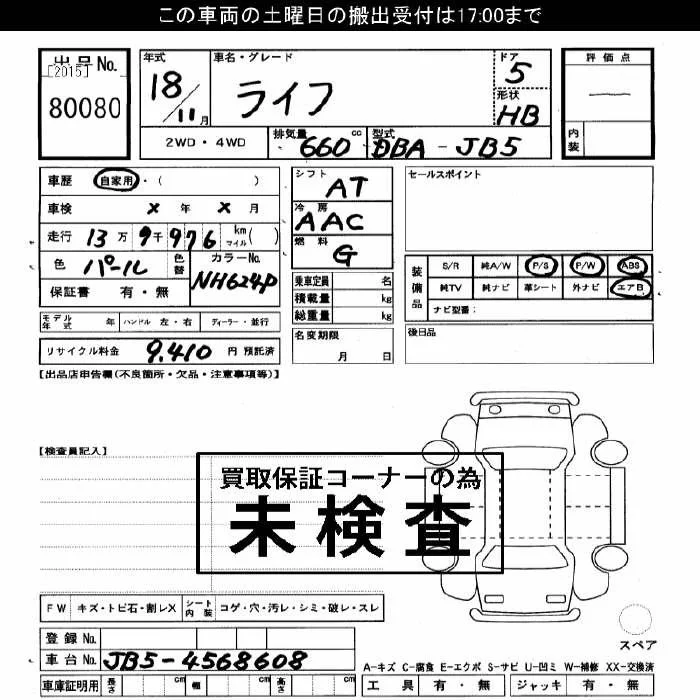 この車両の土曜日の搬出受付は17:00まで
出品No.
[2015]
80080
年式
18/11月
車名・グレード
ライフ
ドア
5
形状
HB
評価点
―
内装
2WD・4WD
排気量 660 cc
型式 DBA-JB5
車歴 自家用・( )
車検 × 年 × 月
走行 13万9千976 km マイル( )
色 パール 色替 カラーNo. NH624P
保証書 有・無
シフト
AT
冷房
AAC
燃料
G
乗車定員 名
積載量 kg
総重量 kg
セールスポイント
装備品
S/R 純A/W P/S P/W ABS
純TV 純ナビ 革シート 外ナビ エアB
ナビ型番:
モデル年式 年 ハンドル 左・右 ディーラー・並行
名変期限
月 日
後日品
リサイクル料金 9,410 円 預託済
【出品店申告欄(不良箇所・欠品・注意事項等)】
【検査員記入】
買取保証コーナーの為
未検査
FW キズ・トビ石・割レX シート内装 コゲ・穴・汚レ・シミ・破レ・スレ
スペア
登録No.
車台No. JB5-4568608
A-キズ C-腐食 E-エクボ S-サビ U-凹ミ W-補修 XX-交換済
車庫証明用 長さ cm 幅 cm 高さ cm
工具 有・無 ジャッキ 有・無